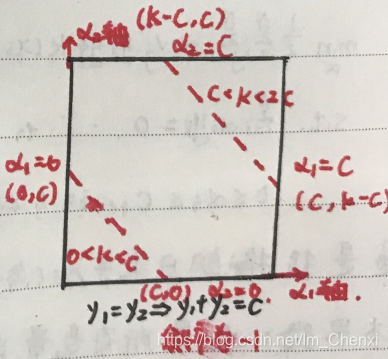 α₂轴 (k-C,C)
α₂=C
C<k<2C
α₁=0
(0,C)
α₁=C
(C,k-C)
0<k<C
(C,0) α₂=0
α₁轴
y₁=y₂⇒y₁+y₂=C
https://blog.csdn.net/Im_Chenxi